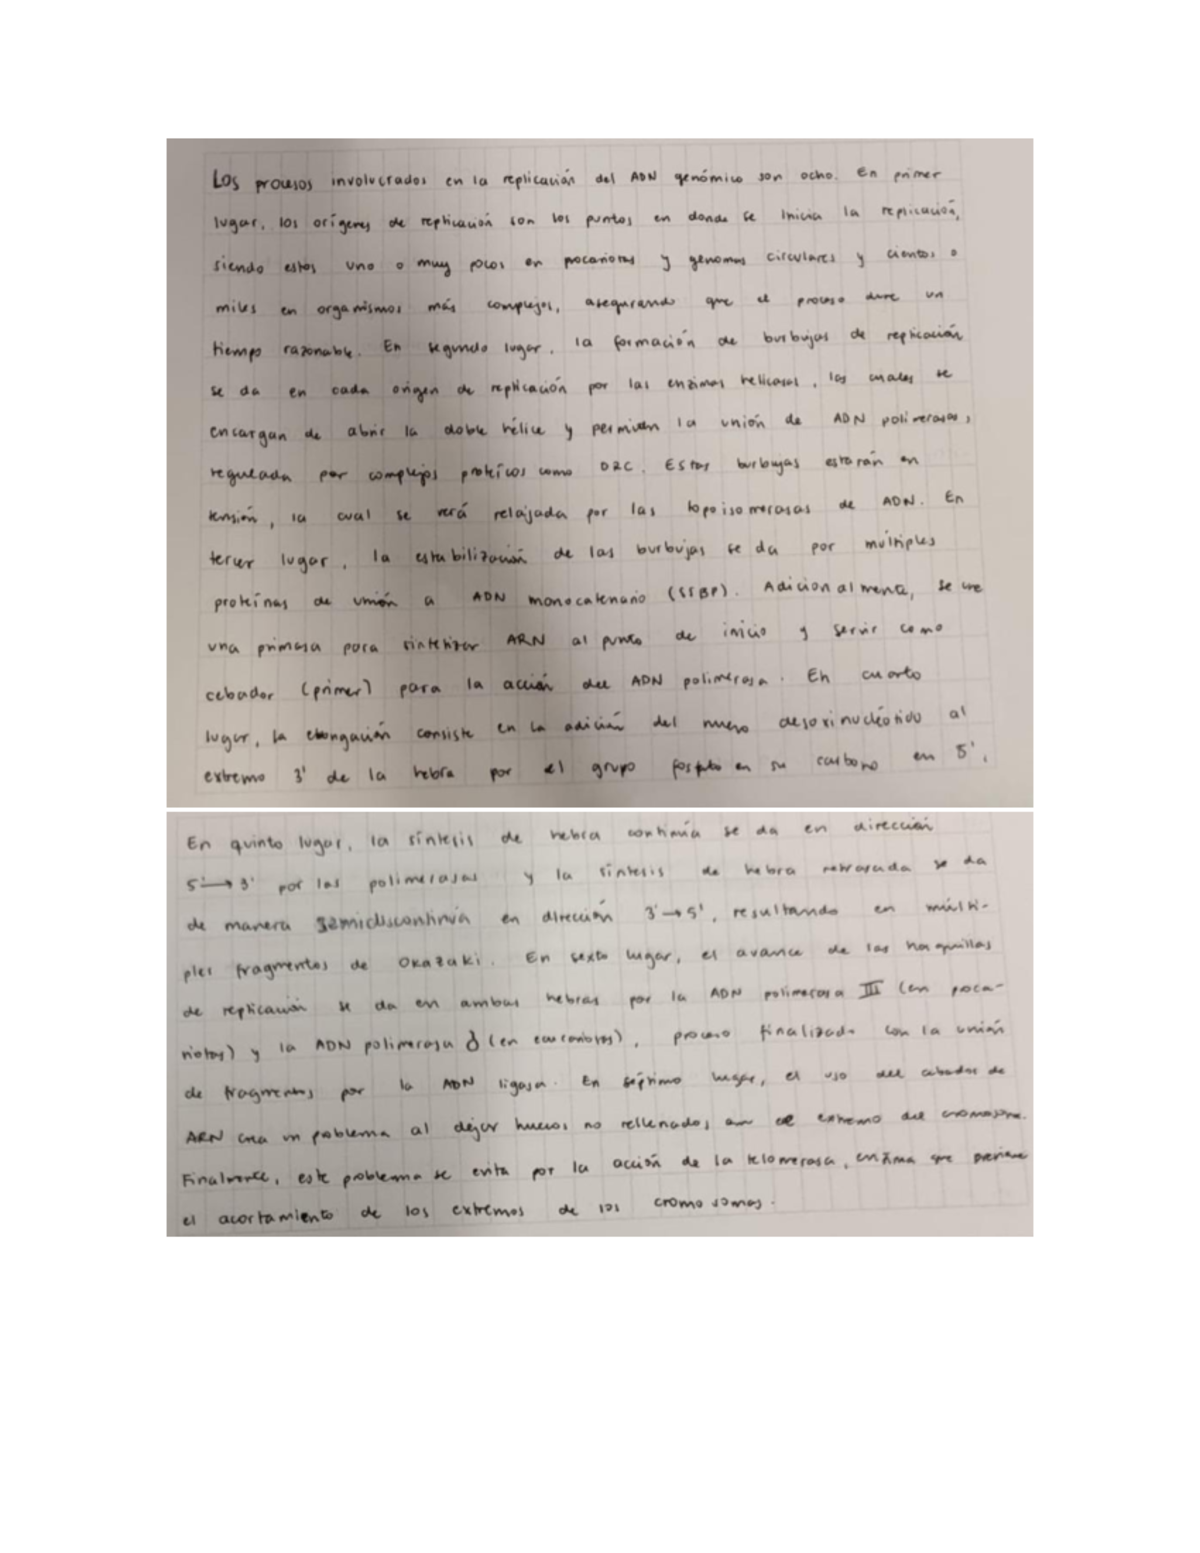 Los procesos involucrados en la replicación del ADN genómico son ocho. En primer
lugar, los orígenes de replicación son los puntos en donde se inicia la replicación,
siendo estos uno o muy pocos en procariotas y genomas circulares y cientos o
miles en organismos más complejos, asegurando que el proceso dure un
tiempo razonable. En segundo lugar, la formación de burbujas de replicación
se da en cada origen de replicación por las enzimas helicasas, las cuales se
encargan de abrir la doble hélice y permiten la unión de ADN polimerasas,
regulada por complejos proteícos como ORC. Estas burbujas estarán en
tensión, la cual se verá relajada por las topoisomerasas de ADN. En
tercer lugar, la estabilización de las burbujas se da por múltiples
proteínas de unión a ADN monocatenario (SSBP). Adicionalmente, se une
una primasa para sintetizar ARN al punto de inicio y servir como
cebador (primer) para la acción del ADN polimerasa. En cuarto
lugar, la elongación consiste en la adición del nuevo desoxinucleótido al
extremo 3' de la hebra por el grupo fosfato en su carbono en 5'.
En quinto lugar, la síntesis de hebra continúa se da en dirección
5'→3' por las polimerasas y la síntesis de hebra retrasada se da
de manera semidiscontinúa en dirección 3'→5', resultando en múlti-
ples fragmentos de Okazaki. En sexto lugar, el avance de las horquillas
de replicación se da en ambas hebras por la ADN polimerasa III (en proca-
riotas) y la ADN polimerasa δ (en eucariotas), proceso finalizado con la unión
de fragmentos por la ADN ligasa. En séptimo lugar, el uso del cebador de
ARN crea un problema al dejar huecos no rellenados, en el extremo del cromosoma.
Finalmente, este problema se evita por la acción de la telomerasa, enzima que previene
el acortamiento de los extremos de los cromosomas.